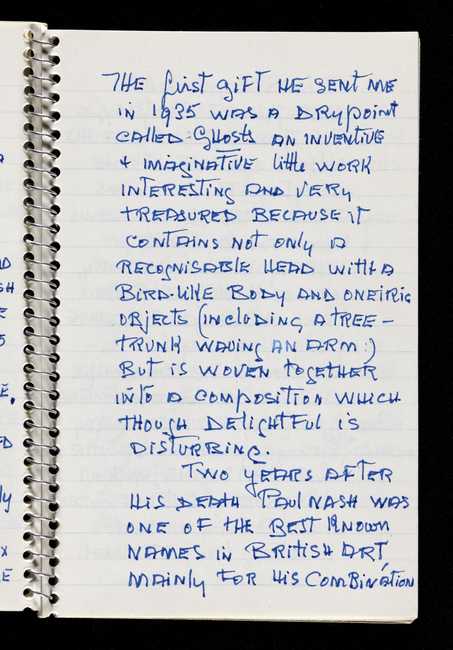 THE first gift HE SENT ME
IN 1935 WAS A DRYPOINT
CALLED: GHOSTS AN INVENTIVE
+ IMAGINATIVE little WORK
INTERESTING AND VERY
TREASURED BECAUSE IT
CONTAINS NOT ONLY A
RECOGNISABLE HEAD WITH A
BIRD-LIKE BODY AND ONEIRIC
OBJECTS (INCLUDING A TREE-
TRUNK WAVING AN ARM:)
BUT IS WOVEN TOGETHER
INTO A COMPOSITION WHICH
THOUGH DELIGHTFUL IS
DISTURBING.
TWO YEARS AFTER
HIS DEATH PAUL NASH WAS
ONE OF THE BEST KNOWN
NAMES IN BRITISH ART,
MAINLY FOR HIS COMBINATION